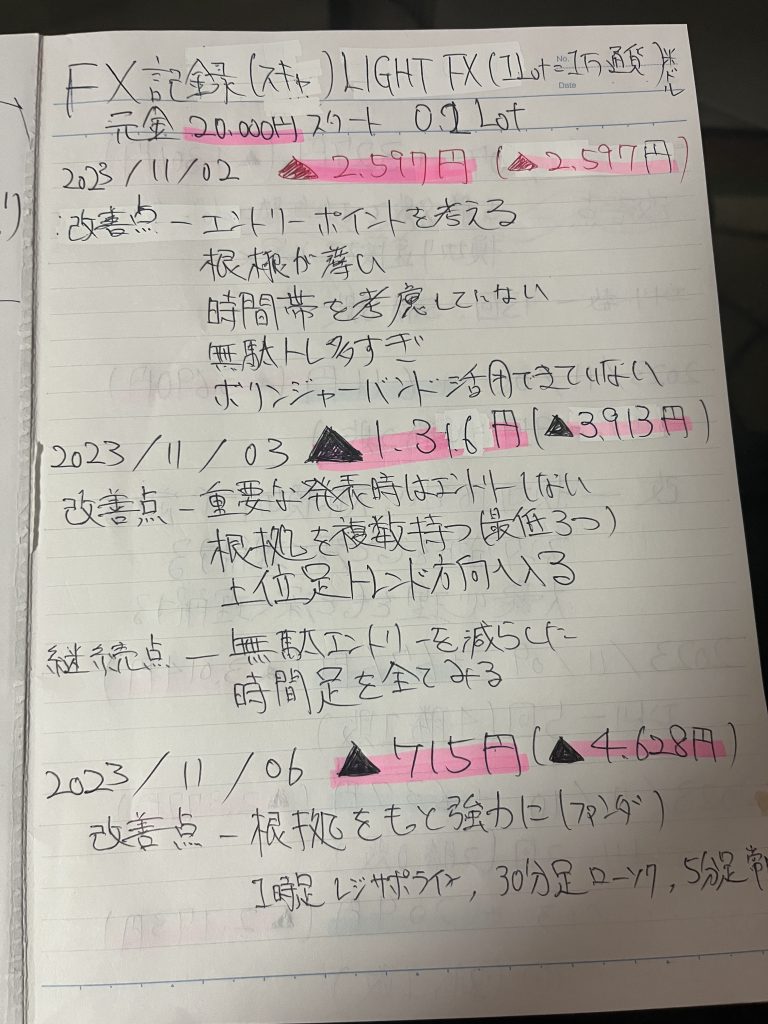 FX記録(スキャ)LIGHT FX(1Lot=1万通貨)米ドル
No.
Date
元金 20.000円スタート 0.1Lot
2023/11/02 ▲2.597円(▲2.597円)
:改善点－エントリーポイントを考える
根拠が薄い
時間帯を考慮していない
無駄トレ多すぎ
ボリンジャーバンド活用できていない
2023/11/03 ▲1.316円(▲3.913円)
改善点－重要な発表時はエントリーしない
根拠を複数持つ(最低3つ)
上位足トレンド方向へ入る
継続点－無駄エントリーを減らした
時間足を全てみる
2023/11/06 ▲715円(▲4.628円)
改善点－根拠をもと強力に(ファンダ)
1時足レジサポライン,30分足ローソク,5分足